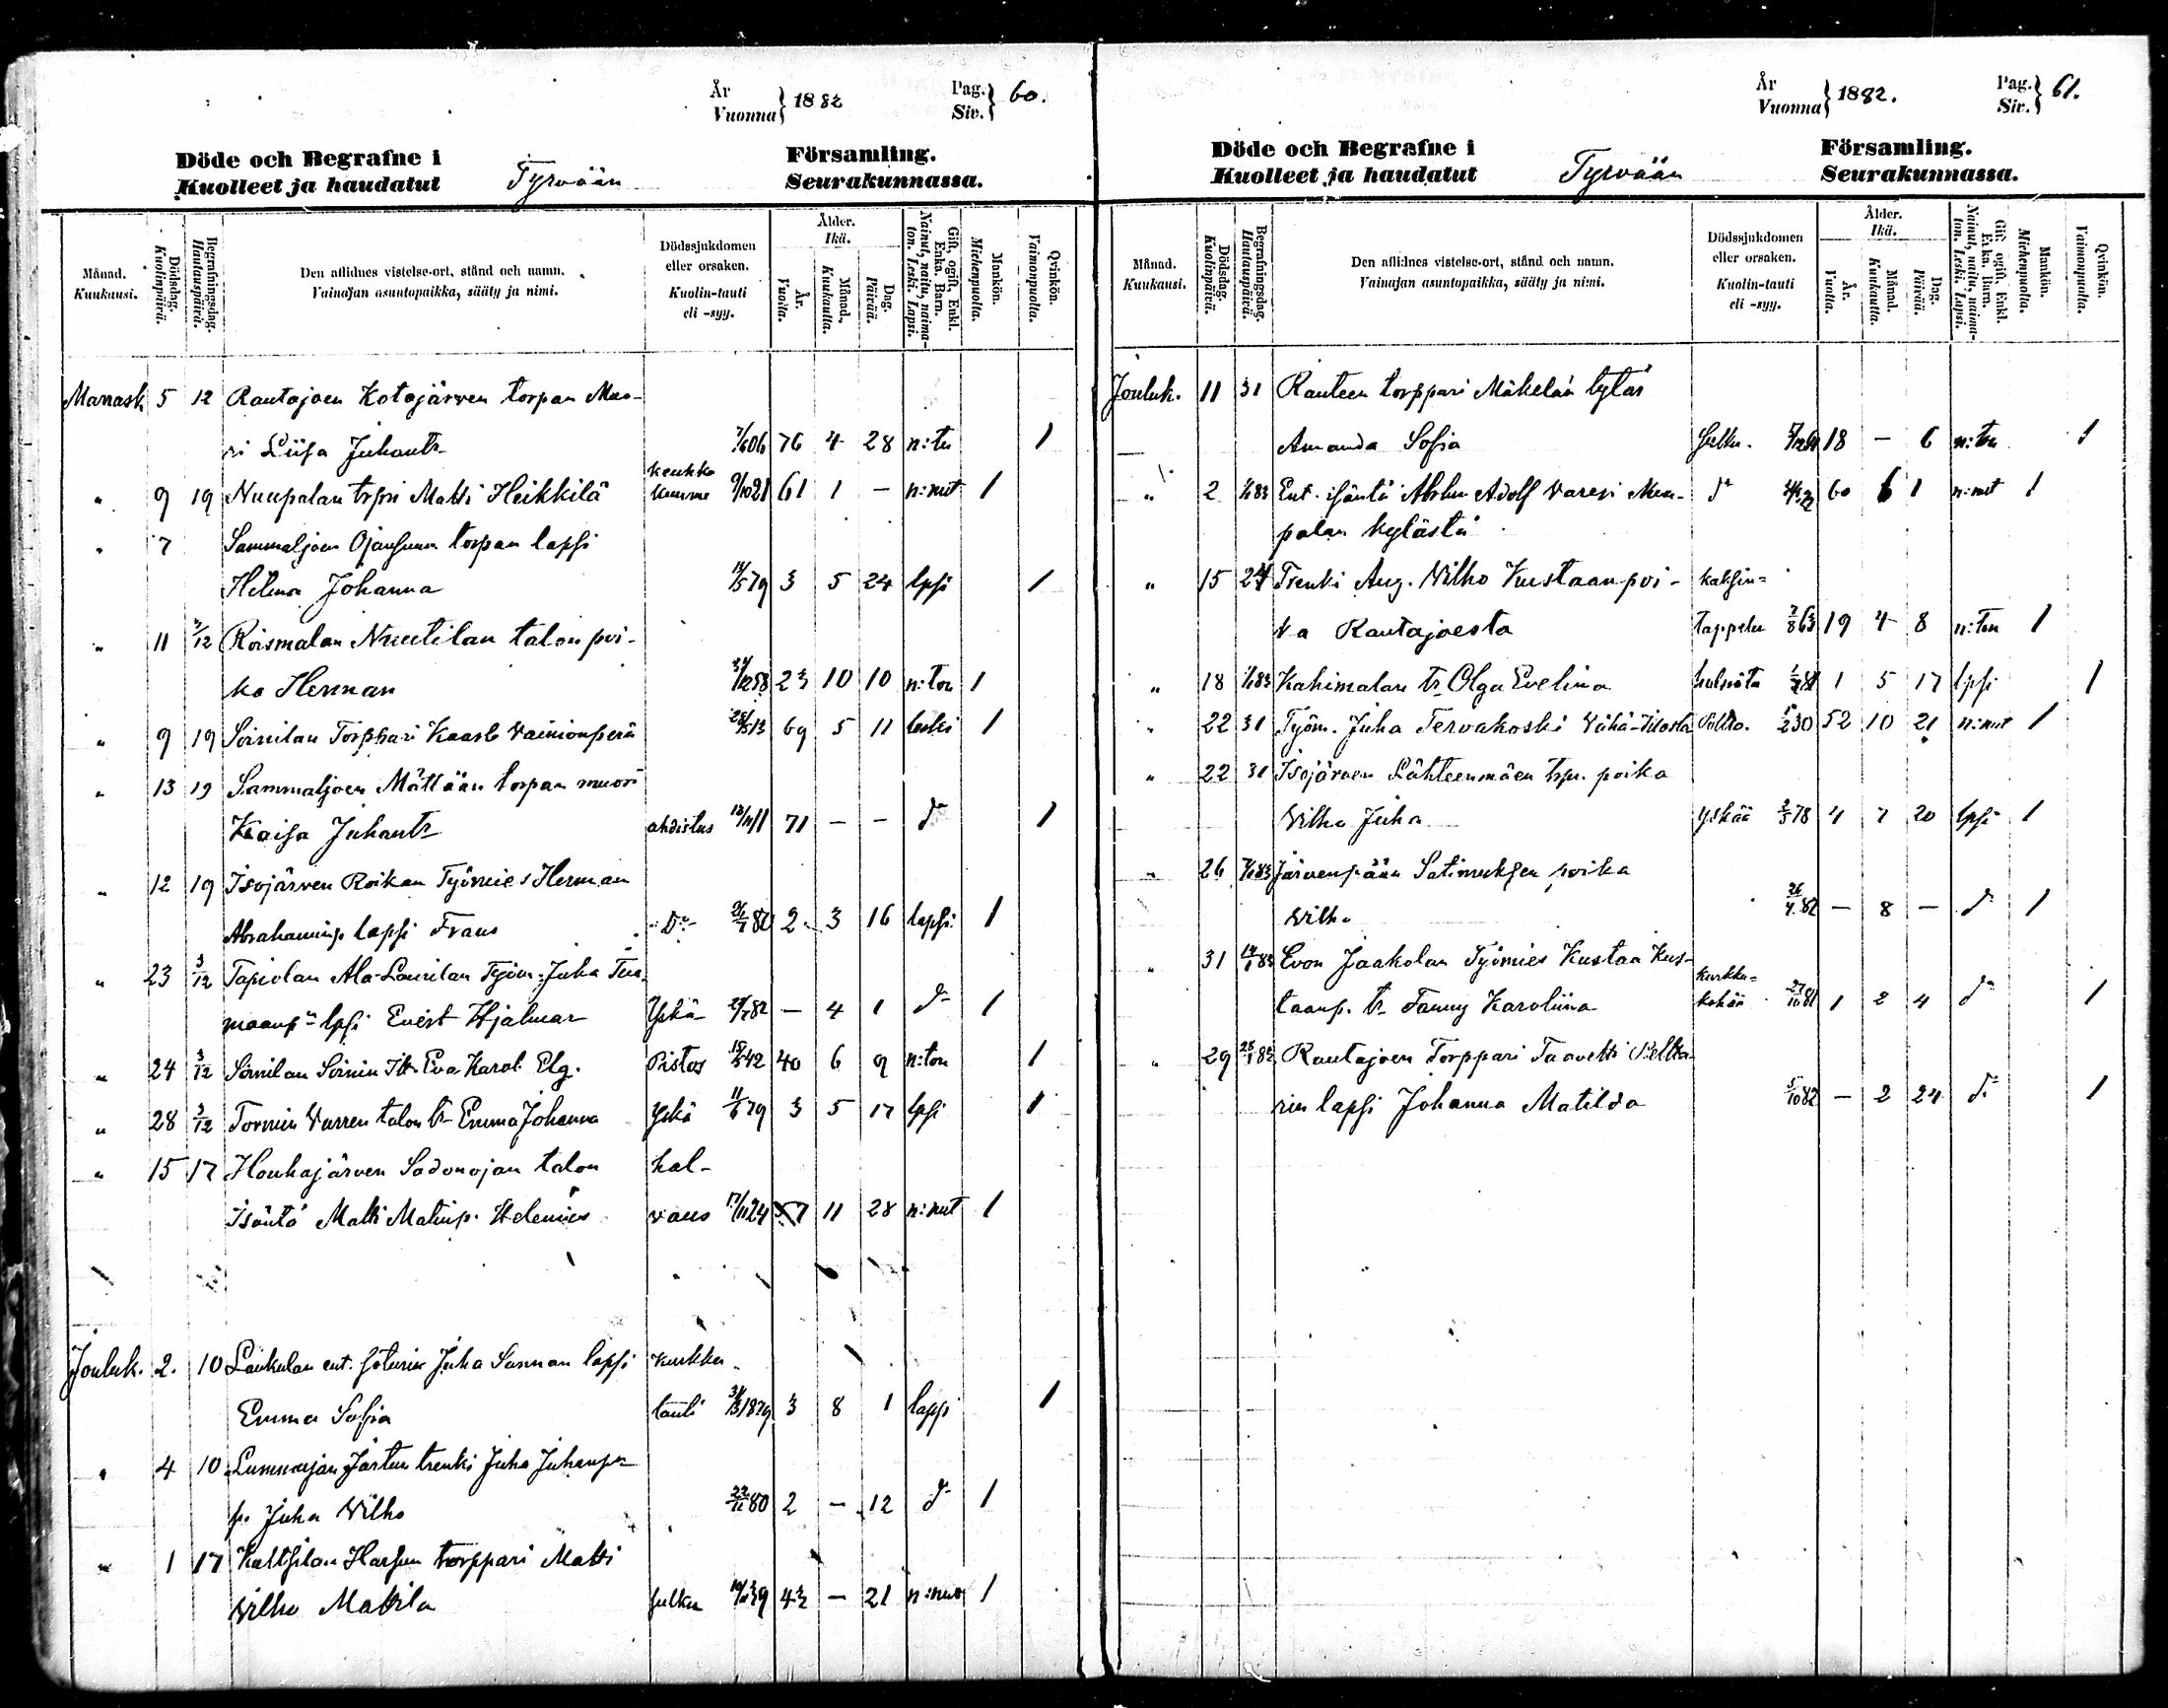 År
Vuonna } 1882
Pag.
Siv. } 60.
Döde och Begrafne i
Kuolleet ja haudatut
Tyrvään
Församling.
Seurakunnassa.
Månad. Kuukausi.
Dödsdag. Kuolinpäivä.
Begrafningsdag. Hautauspäivä.
Den aflidnes vistelse-ort, stånd och namn. Vainajan asuntopaikka, sääty ja nimi.
Dödssjukdomen eller orsaken. Kuolin-tauti eli -syy.
Ålder. Ikä.
År. Vuotta.
Månad. Kuukautta.
Dag. Päivää.
Gift, ogift, Enkl. Enka. Barn. Nainut, naitu, naimaton. Leski. Lapsi.
Mankön. Miehenpuolta.
Qvinkön. Vaimonpuolta.
Marrask 5 12 Rautajoen Kotojärven torpan Muo-
ri Liisa Juhantr 7/6 06 76 4 28 n:tu 1
" 9 19 Nuupalan trpri Matti Heikkilä keuhko kuume 9/10 21 61 1 - n:nut 1
" 7 Sammaljoen Ojansuun torpan lapsi
Helma Johanna 79 3 5 24 lpsi 1
" 11 3/12 Roismalan Nuutilan talon poi-
ka Herman 58 23 10 10 n:ton 1
" 9 19 Soinilan Torppari Kaarle Vainionperä 28/5 13 69 5 11 leski 1
" 13 19 Sammaljoen Mättään torpan muori
Kaisa Juhantr ahdistus 13/11 11 71 - - do 1
" 12 19 Isojärven Roikan Työmies Herman
Abrahaminp. lapsi Frans Do 80 2 3 16 lapsi 1
" 23 3/12 Tapiolan Ala-Laurilan Työm. Juha Tuo-
maanp:n lpsi Evert Hjalmar Yskä 82 - 4 1 do 1
" 24 3/12 Soinilan Soinin Itt. Eva Karol. Elg. Pistos 15/5 42 40 6 9 n:ton 1
" 28 3/12 Tornin Varren talon tr Emma Johanna Yskä 11/6 79 3 5 17 lpsi 1
" 15 17 Houhajärven Sadonojan talon hal-
Isäntä Matti Matinp. Helenius vaus 17/11 24 57 11 28 n:nut 1
Jouluk. 2. 10 Laukulan ent. Juha Sannan lapsi kurkku-
Emma Sofia tauti 31/3 1879 3 8 1 lapsi 1
" 4 10 Lummajan Jartun trenki Juha Juhanpn
p. Juha Vilho 22/11 80 2 - 12 do 1
" 1 17 Kaltsilan Harsun torppari Matti
Vilho Mattila Sulku 10/11 39 43 - 21 n:nut 1
År
Vuonna } 1882.
Pag.
Siv. } 61.
Döde och Begrafne i
Kuolleet ja haudatut
Tyrvään
Församling.
Seurakunnassa.
Månad. Kuukausi.
Dödsdag. Kuolinpäivä.
Begrafningsdag. Hautauspäivä.
Den aflidnes vistelse-ort, stånd och namn. Vainajan asuntopaikka, sääty ja nimi.
Dödssjukdomen eller orsaken. Kuolin-tauti eli -syy.
Ålder. Ikä.
År. Vuotta.
Månad. Kuukautta.
Dag. Päivää.
Gift, ogift, Enkl. Enka. Barn. Nainut, naitu, naimaton. Leski. Lapsi.
Mankön. Miehenpuolta.
Qvinkön. Vaimonpuolta.
Jouluk. 11 31 Rauteen torppari Mäkelän tytär
Amanda Sofia Sulku. 18 - 6 n:ton 1
" 2 1/1 83 Ent. isäntä Abrhm Adolf Varesi
palan kylästä do 60 6 1 n:nut 1
" 15 24 Trenki Aug. Vilho Kustaan poi- kaksin-
ka Rautajoesta tappelu 7/8 63 19 4 8 n:ton 1
" 18 1/1 83 Kahimalan tr. Olga Evelina 81 1 5 17 lpsi 1
" 22 31 Työm. Juha Tervakoski Vähä- 1/2 30 52 10 21 n:nut 1
" 22 31 Isojärven Lähteenmäen trp. poika
Vilho Juha Yskää 2/5 78 4 7 20 lpsi 1
" 26 7/1 83 Järvenpään Satimuksen poika
Vilho 26/4 82 - 8 - do 1
" 31 14/1 83 Evon Jaakolan Työmies Kustaa Kus-
taanp. tr. Fanny Karoliina kurkku- 27/10 81 1 2 4 do 1
" 29 28/1 83 Rautajoen Torppari Taavetti Pelto-
rin lapsi Johanna Matilda 5/10 82 - 2 24 do 1